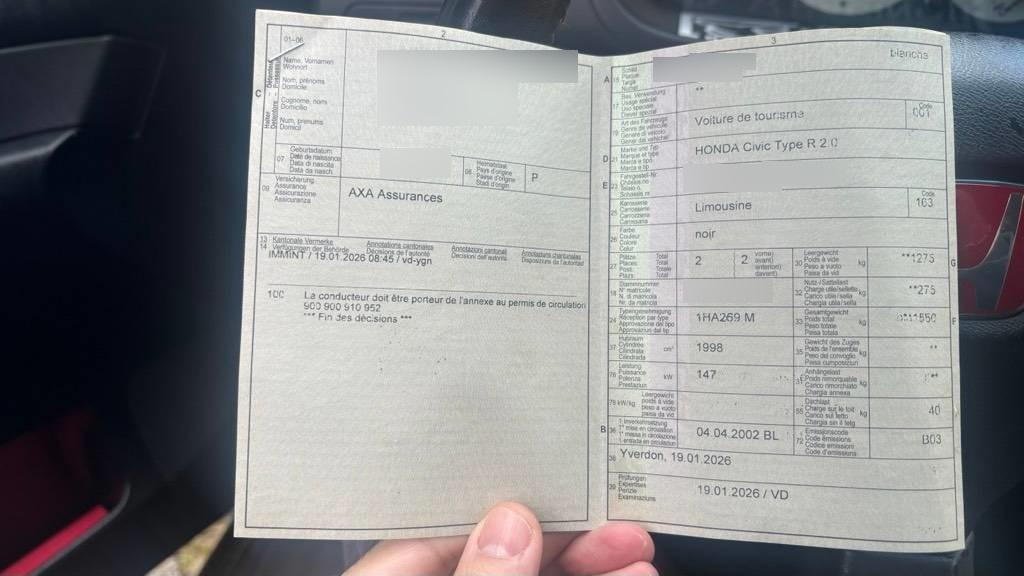 2
01-06
C
Halter
Name, Vornamen
Wohnort
Nom, prénoms
Domicile
Cognome, nom
Domicilio
Num, prenums
Domicil
07
Geburtsdatum
Date de naissance
Data di nascita
Data da nasch.
08
Heimatstaat
Pays d'origine
Paese d'origine
Stadi d'origin
P
09
Versicherung
Assurance
Assicurazione
Assicuranza
AXA Assurances
13 Kantonale Vermerke Annotations cantonales Annotazioni cantonali Annotaziuns chantunalas
14 Verfügungen der Behörde Décisions de l'autorité Decisioni dell'autorità Disposiziuns da l'autoritad
IMMINT / 19.01.2026 08:45 / vd-ygn
100 La conducteur doit être porteur de l'annexe au permis de circulation
900 900 910 952
*** Fin des décisions ***
3
blanche
A 15
Schild
Plaque
Targa
Numer
17
Bes. Verwendung
Usage spécial
Uso speciale
Diever spezial
**
19
Art des Fahrzeugs
Genre de véhicule
Genere di veicolo
Gener da vehichel
Voiture de tourisme
Code
001
D 21
Marke und Typ
Marque et type
Marca e tipo
Marca e tip
HONDA Civic Type R 2.0
E 23
Fahrgestell-Nr.
Châssis no
Telaio n.
Schassis nr.
25
Karosserie
Carrosserie
Carrozzeria
Carossaria
Limousine
Code
163
26
Farbe
Couleur
Colore
Colur
noir
27
Plätze: Total
Places: Total
Posti: Totale
Plazs: Total
2
2
vorne)
avant)
anteriori)
davant)
30
Leergewicht
Poids à vide
Peso a vuoto
Paisa da vid
kg
**1275
G
18
Stammnummer
N° matricule
N. di matricola
Nr. da matricla
32
Nutz-/Sattellast
Charge utile/sellette
Carico utile/sella
Chargia utila/sella
kg
**275
24
Typengenehmigung
Réception par type
Approvazione del tipo
Approvaziun dal tip
1HA269 M
33
Gesamtgewicht
Poids total
Peso totale
Paisa totala
kg
**1550
F
37
Hubraum
Cylindrée
Cilindrata
Cilindrada
cm³
1998
35
Gewicht des Zuges
Poids de l'ensemble
Peso del convoglio
Paisa cumposiziun
kg
**
76
Leistung
Puissance
Potenza
Prestaziun
kW
147
31
Anhängelast
Poids remorquable
Carico rimorchiato
Chargia annexa
kg
78 kW/kg
Leergewicht
poids à vide
peso a vuoto
paisa da vid
55
Dachlast
Charge sur le toit
Carico sul tetto
Chargia sin il tetg
kg
40
B 36
1. Inverkehrsetzung
1re mise en circulation
1a messa in circolazione
1. entrada en circulaziun
04.04.2002 BL
72
Emissionscode
Code émissions
Codice emissioni
Code d'emissiuns
B03
38 Yverdon, 19.01.2026
39
Prüfungen
Expertises
Perizie
Examinaziuns
19.01.2026 / VD